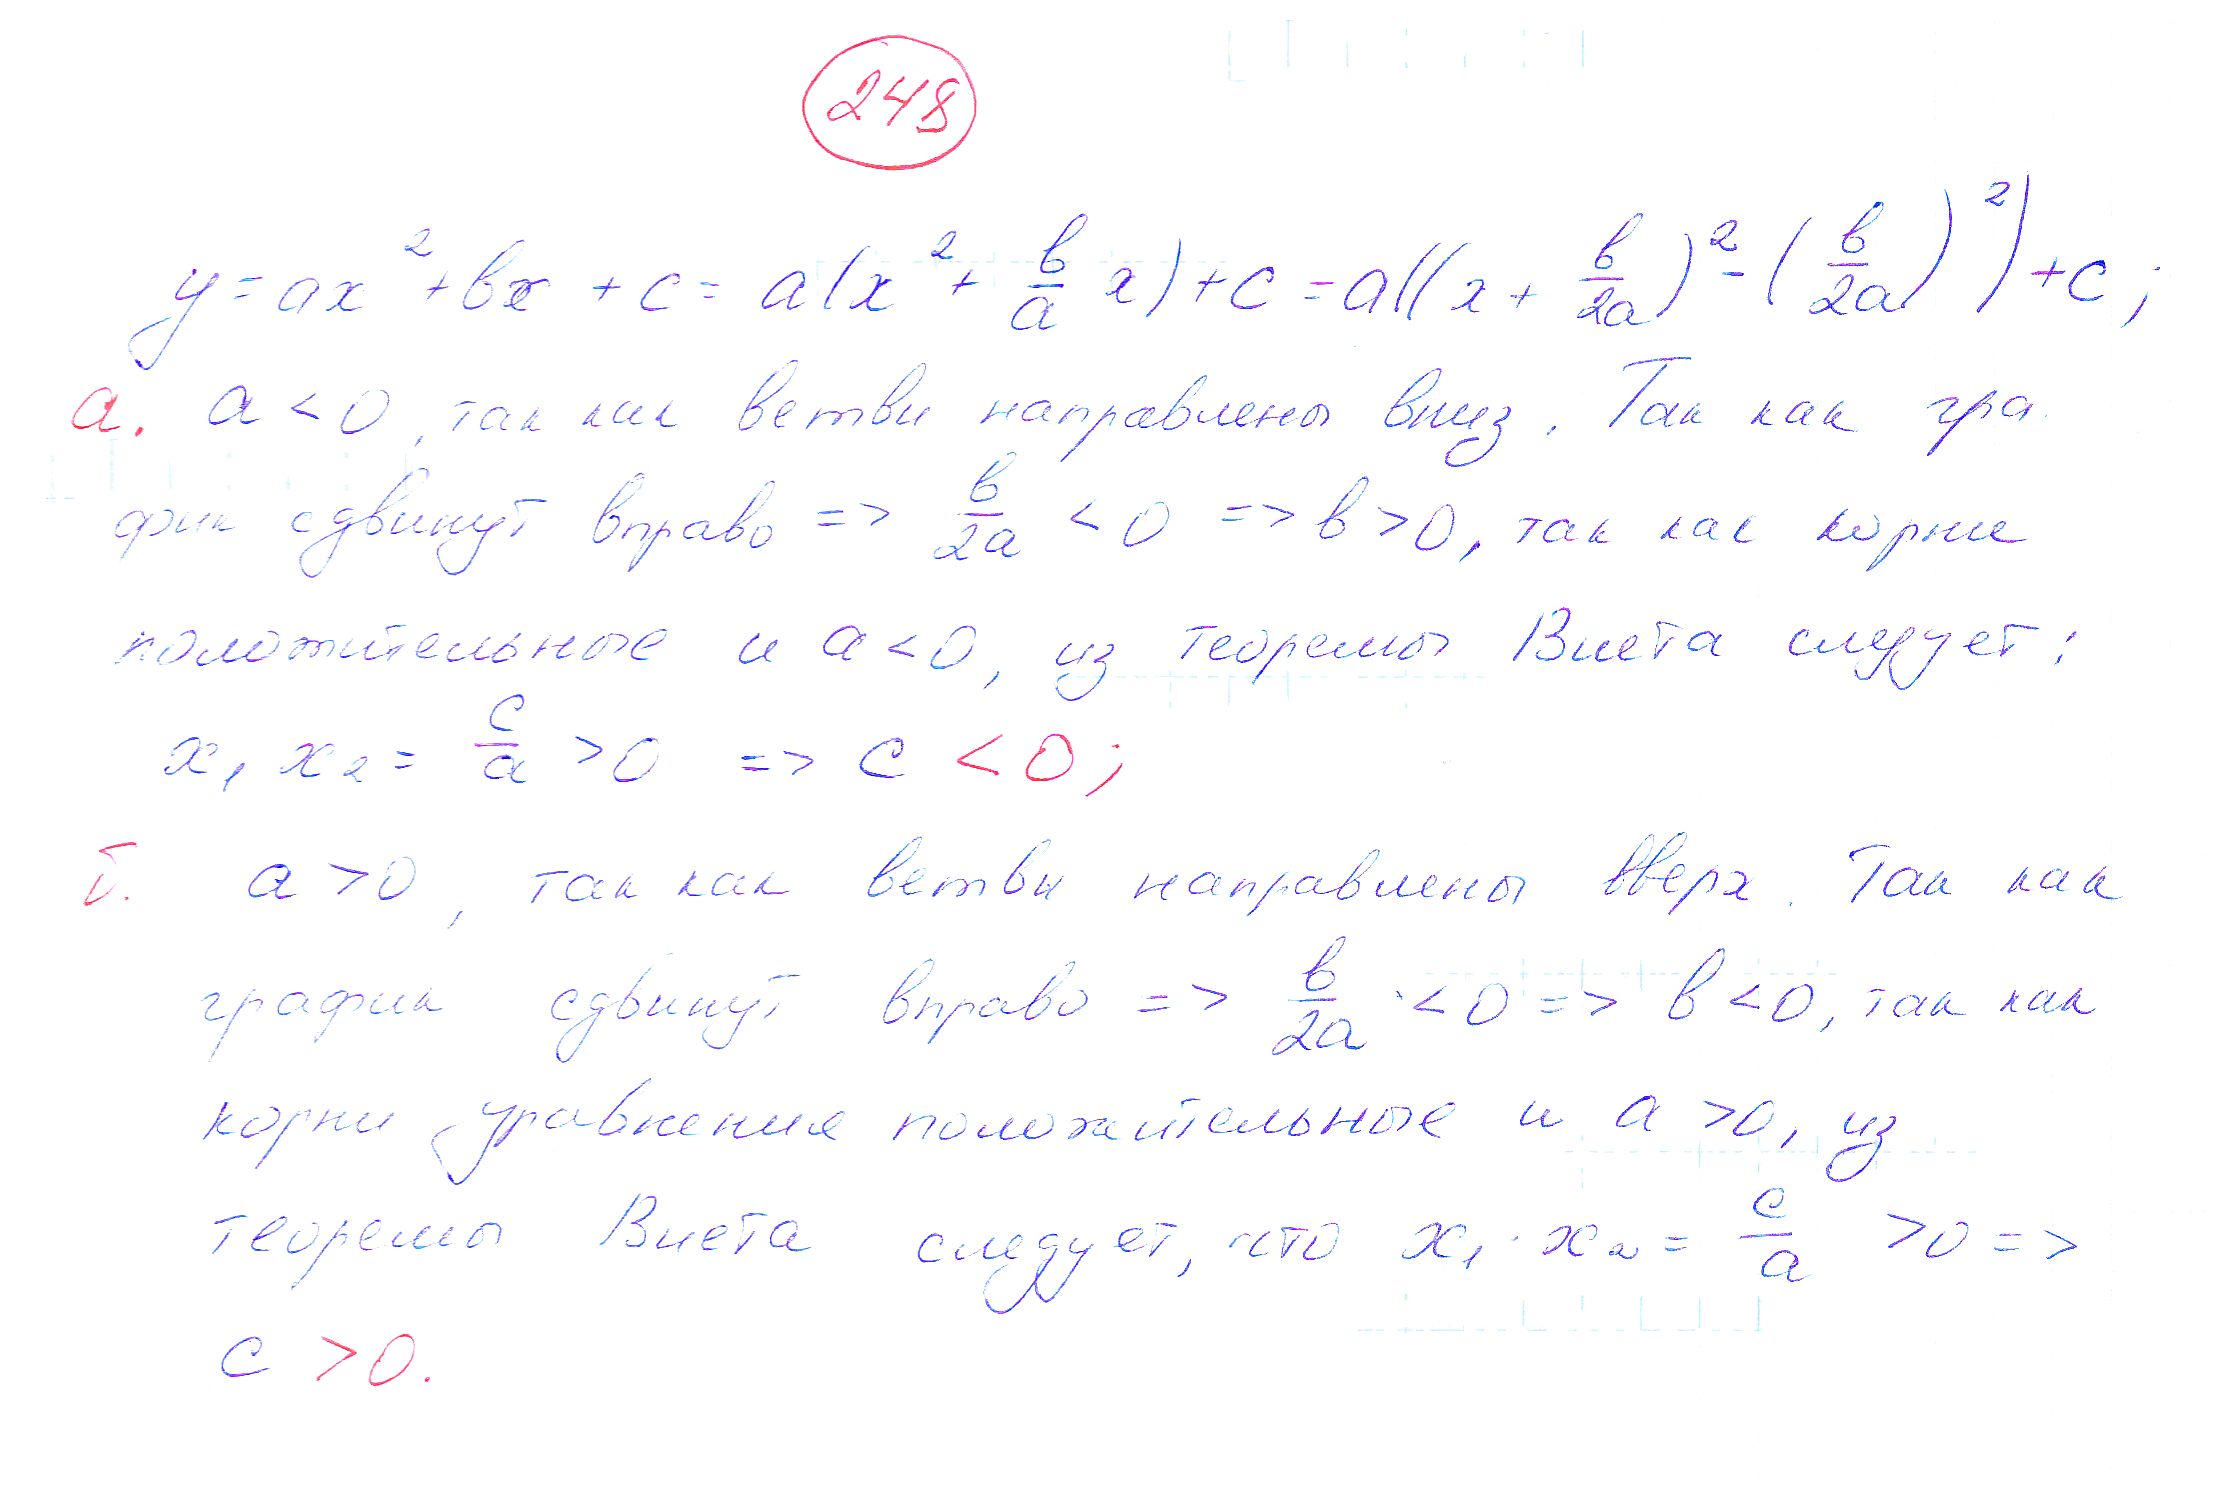 248
y = ax² + bx + c = a(x² + b/a x) + c = a((x + b/2a)² - (b/2a)²) + c;
а. a < 0, так как ветви направлены вниз. Так как гра-
фик сдвинут вправо => b/2a < 0 => b > 0, так как корни
положительные и a < 0, из теоремы Виета следует:
x₁ x₂ = c/a > 0 => c < 0;
б. a > 0, так как ветви направлены вверх. Так как
график сдвинут вправо => b/2a < 0 => b < 0, так как
корни уравнения положительные и a > 0, из
теоремы Виета следует, что x₁ · x₂ = c/a > 0 =>
c > 0.